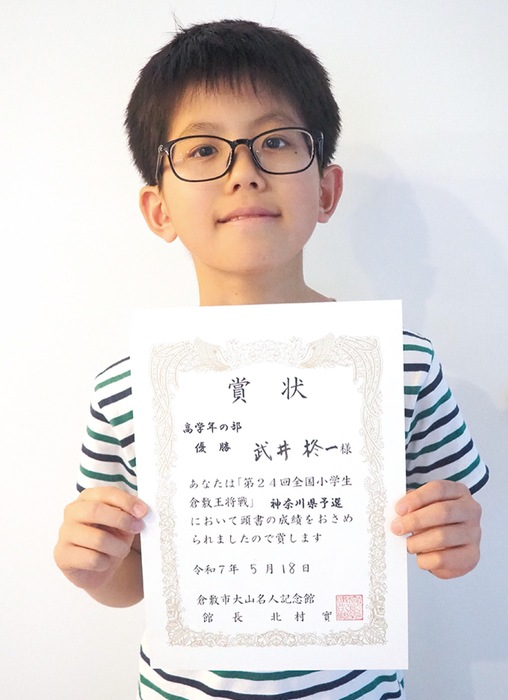 賞状
高学年の部
優勝 武井柊一様
あなたは「第24回全国小学生
倉敷王将戦」 神奈川県予選
において頭書の成績をおさめ
られましたので賞します
令和7年 5月18日
倉敷市大山名人記念館
館長 北村 實